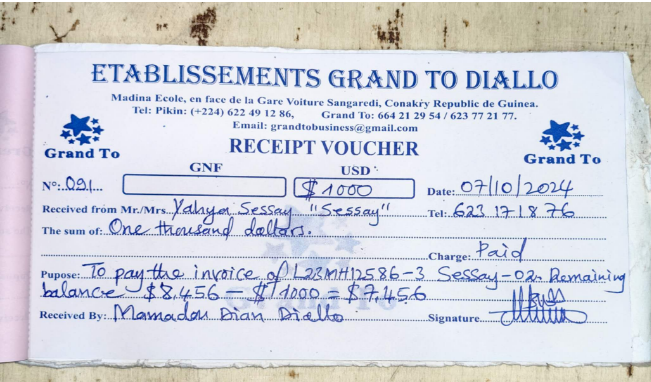 ETABLISSEMENTS GRAND TO DIALLO
Madina Ecole, en face de la Gare Voiture Sangaredi, Conakry Republic de Guinea.
Tel: Pikin: (+224) 622 49 12 86, Grand To: 664 21 29 54 / 623 77 21 77.
Email: grandtobusiness@gmail.com
Grand To
RECEIPT VOUCHER
Grand To
GNF USD
Nº: 091 $ 1000 Date: 07/10/2024
Received from Mr./Mrs. Yahya Sessay "Sessay" Tel: 623 17 18 76
The sum of: One thousand dollars.
Charge: Paid
Pupose: To pay the invoice of L23MH12586-3 Sessay-02. Remaining
balance $8,456 - $ 1000 = $7,456
Received By: Mamadou Dian Diallo Signature
Grand To